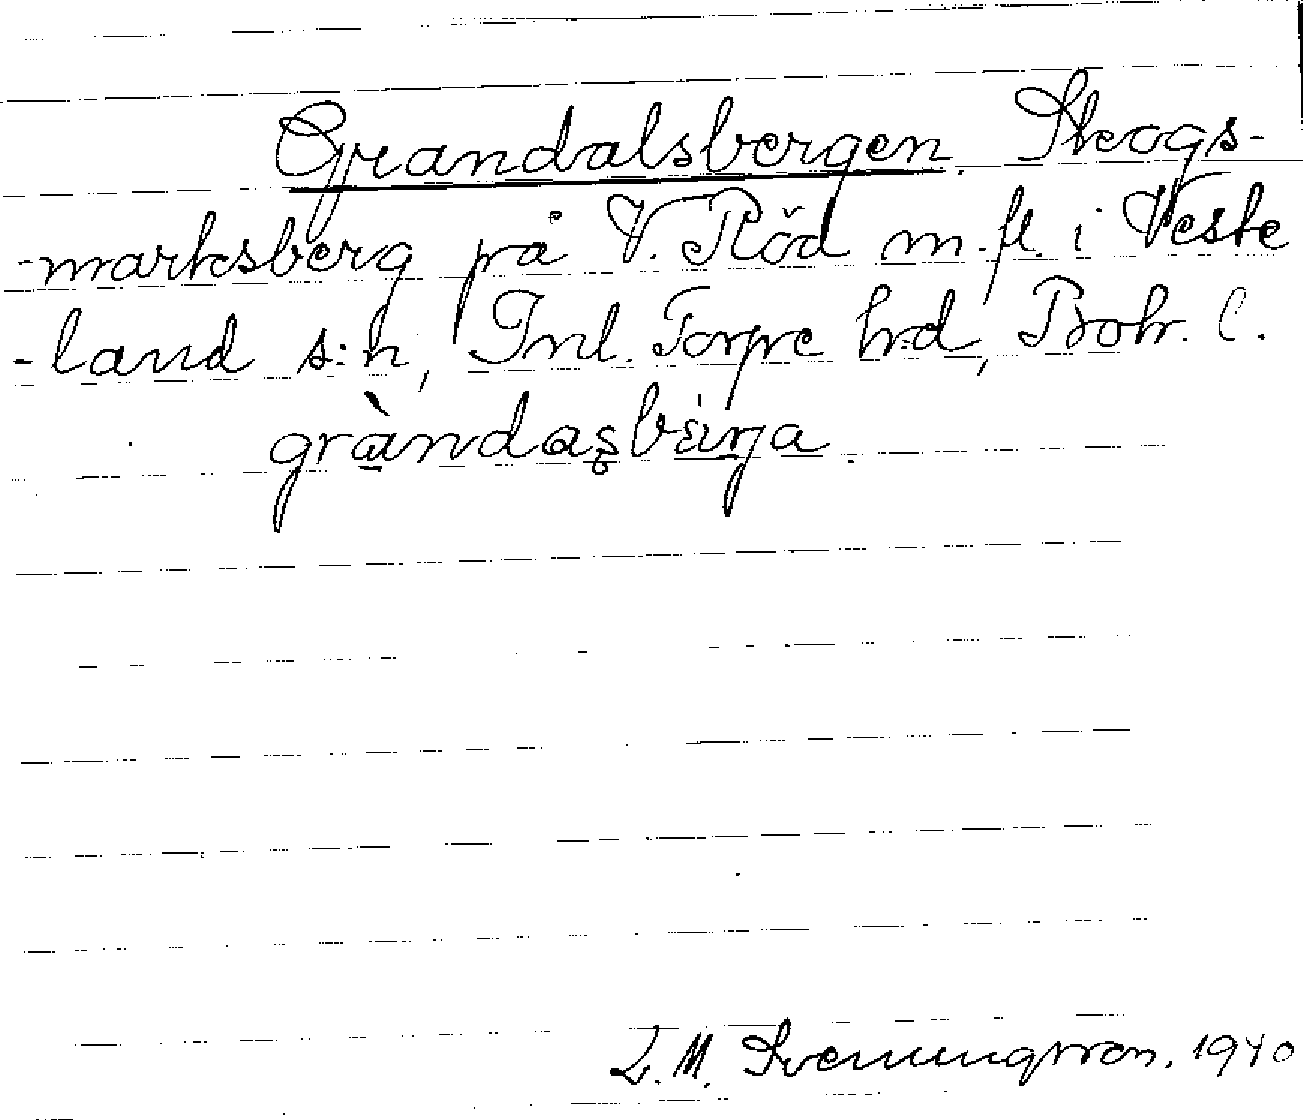 Grandalsbergen. Skogs-
-marksberg på V. Röd m.fl. i Veske
-land s:n, Inl. Torpe h:d, Boh. l.
gràndasbärja.
L. M. Svenungsson. 1940